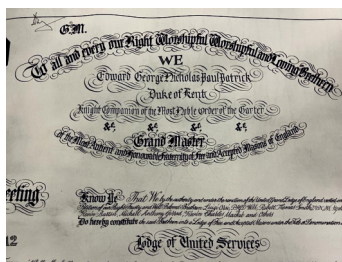 G.M.
To all and every our Right Worshipful Worshipful and Loving Brethren
WE
Edward George Nicholas Paul Patrick
Duke of Kent
Knight Companion of the Most Noble Order of the Garter
&c, &c, &c, &c,
Grand Master
of the Most Ancient and Honourable Fraternity of Free and Accepted Masons of England
Know Ye That We by the authority and under the sanction of the United Grand Lodge of England
Petition of our Right Trusty and Well Beloved Brethren
Kevin Michael Anthony Kevin Charles and Others
Do hereby constitute the said Brethren into a Lodge of Free and Accepted Masons under the Title or Denomination
Lodge of United Services
eeting
12